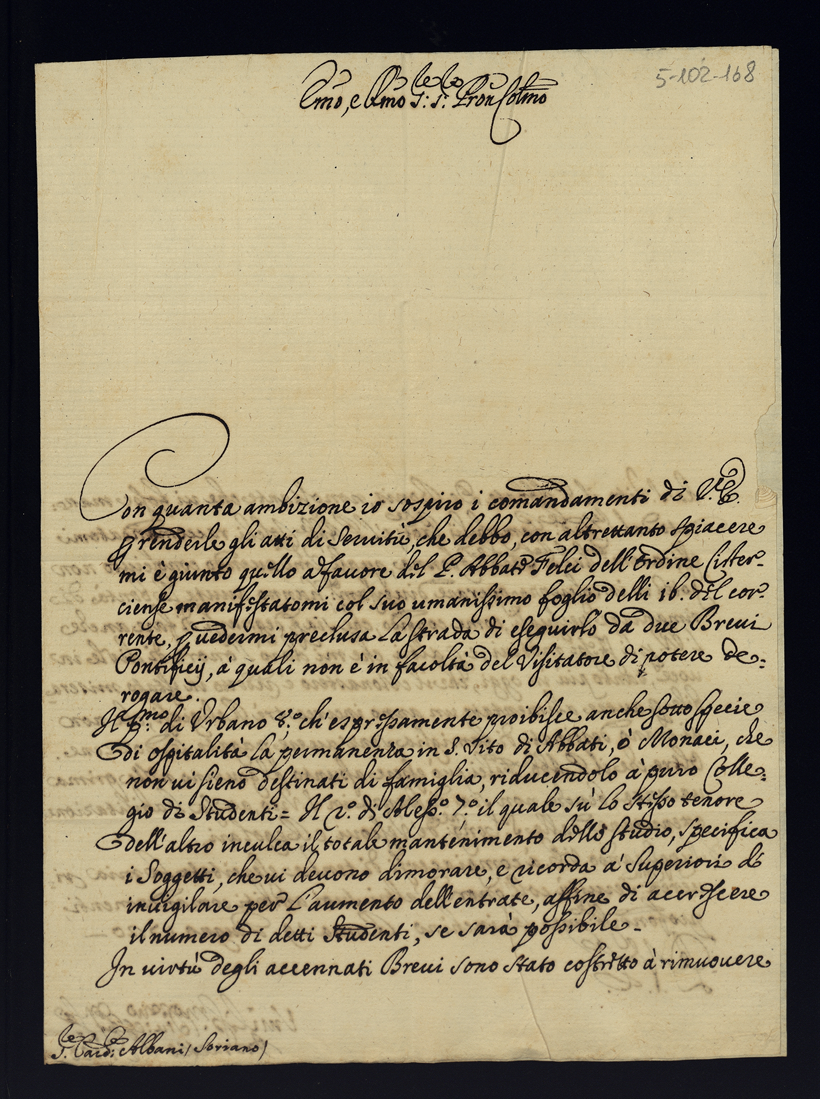 5-102-168
Emo, e Rmo Sig: Sig: Pron Colmo
Con quanta ambizione io sospiro i comandamenti di V.E.
p renderle gli atti di servitù, che debbo, con altrettanto spiacere
mi è giunto quello a favore del P. Abbate Felci dell'Ordine Cister-
ciense manifestatomi col suo umanissimo foglio delli 16. del cor-
rente, p vedermi preclusa la strada di eseguirlo da due Brevi
Pontificij, à quali non è in facoltà del Visitatore di potere de-
rogare.
Il pmo: di Urbano 8.º ch'espressamente proibisce anche sotto specie
di ospitalità la permanenza in S. Vito di Abbati, ò Monaci, che
non vi sieno destinati di famiglia, riducendolo à puro Colle-
gio di Studenti = Il 2.º di Aless.º 7.º il quale sù lo stesso tenore
dell'altro inculca il totale mantenimento dello studio, specifica
i Soggetti, che vi devono dimorare, e ricorda a' Superiori di
invigilare per l'aumento dell'entrate, affine di accrescere
il numero di detti Studenti, se sarà possibile -
In virtù degli accennati Brevi sono stato costretto à rimuovere
S. Card: Albani (Soriano)